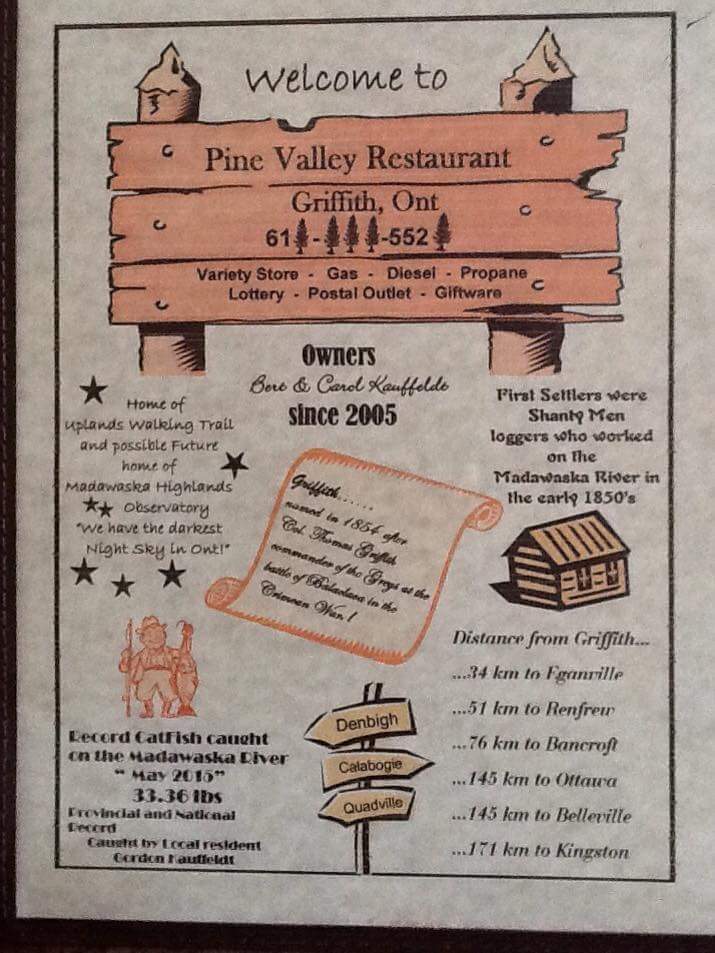 Welcome to
Pine Valley Restaurant
Griffith, Ont
61 - -552
Variety Store - Gas - Diesel - Propane
Lottery - Postal Outlet - Giftware
Owners
& Carol Kauffeldt
since 2005
Home of
Uplands Walking Trail
and possible Future
home of
Madawaska Highlands
Observatory
"We have the darkest
Night Sky in Ont!"
First Settlers were
Shanty Men
loggers who worked
on the
Madawaska River in
the early 1850's
Griffith......
named in 1854 after
Col. Thomas Griffith
commander of the Greys at the
battle of Balaclava in the
Crimean War!
Distance from Griffith...
...34 km to Eganville
...51 km to Renfrew
...76 km to Bancroft
...145 km to Ottawa
...145 km to Belleville
...171 km to Kingston
Record Catfish caught
on the Madawaska River
" May 2015"
33.36 lbs
Provincial and National
Record
Caught by Local resident
Gordon Kauffeldt
Denbigh
Calabogie
Quadville